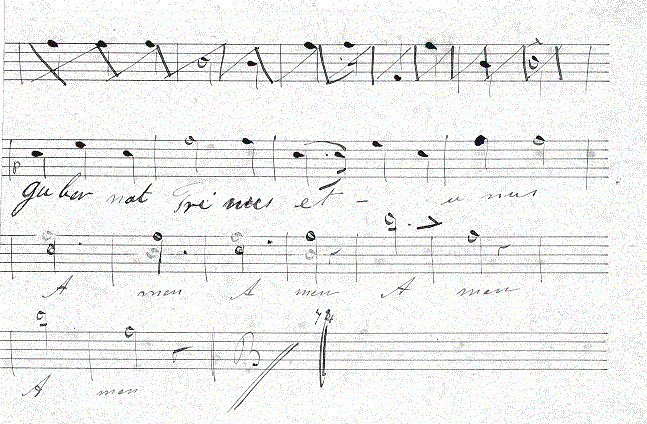 gu ber nat Tri nus et - u nus
A men A men A men
A men